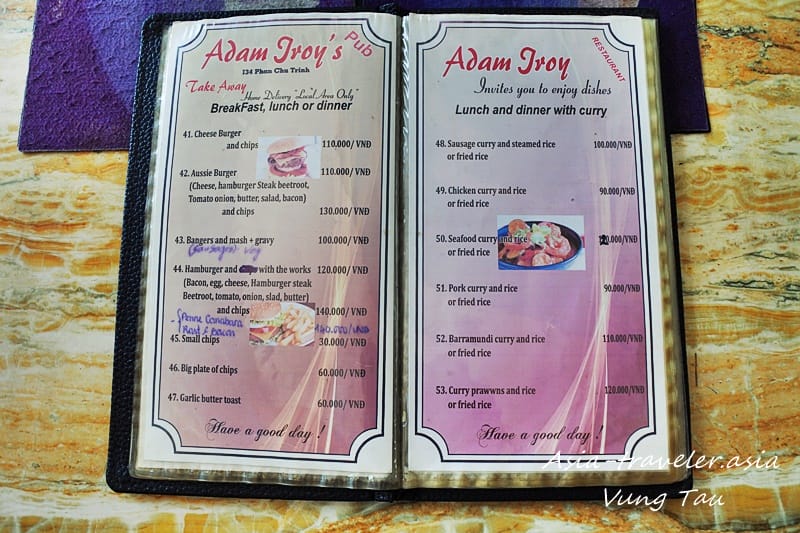 Adam Troy's Pub
134 Phun Chu Trinh
Take Away
Home Delivery "Local Area Only"
BreakFast, lunch or dinner
41. Cheese Burger
and chips 110.000/VNĐ
42. Aussie Burger 110.000/VNĐ
(Cheese, hamburger Steak beetroot,
Tomato onion, butter, salad, bacon)
and chips 130.000/VNĐ
43. Bangers and mash + gravy 100.000/VNĐ
(Sausages)
44. Hamburger and with the works 120.000/VNĐ
(Bacon, egg, cheese, Hamburger steak
Beetroot, tomato, onion, slad, butter)
and chips 140.000/VNĐ
- Penne Canabara 140.000/VNĐ
& Bacon
45. Small chips 30.000/VNĐ
46. Big plate of chips 60.000/VNĐ
47. Garlic butter toast 60.000/VNĐ
Have a good day !
Adam Troy RESTAURANT
Invites you to enjoy dishes
Lunch and dinner with curry
48. Sausage curry and steamed rice 100.000/VNĐ
or fried rice
49. Chicken curry and rice 90.000/VNĐ
or fried rice
50. Seafood curry and rice 0.000/VNĐ
or fried rice
51. Pork curry and rice 90.000/VNĐ
or fried rice
52. Barramundi curry and rice 110.000/VNĐ
or fried rice
53. Curry prawwns and rice 120.000/VNĐ
or fried rice
Have a good day !
Asia-traveler.asia
Vung Tau